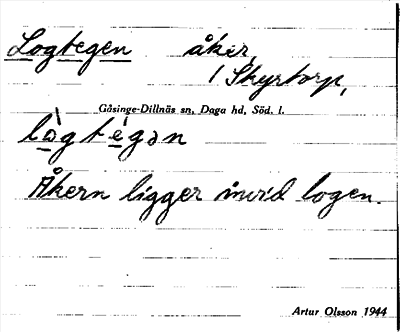 Logtegen åker,
/ Skyrtorp,
Gåsinge-Dillnäs sn, Daga hd, Söd. l.
lògtégən
Åkern ligger invid logen.
Artur Olsson 1944